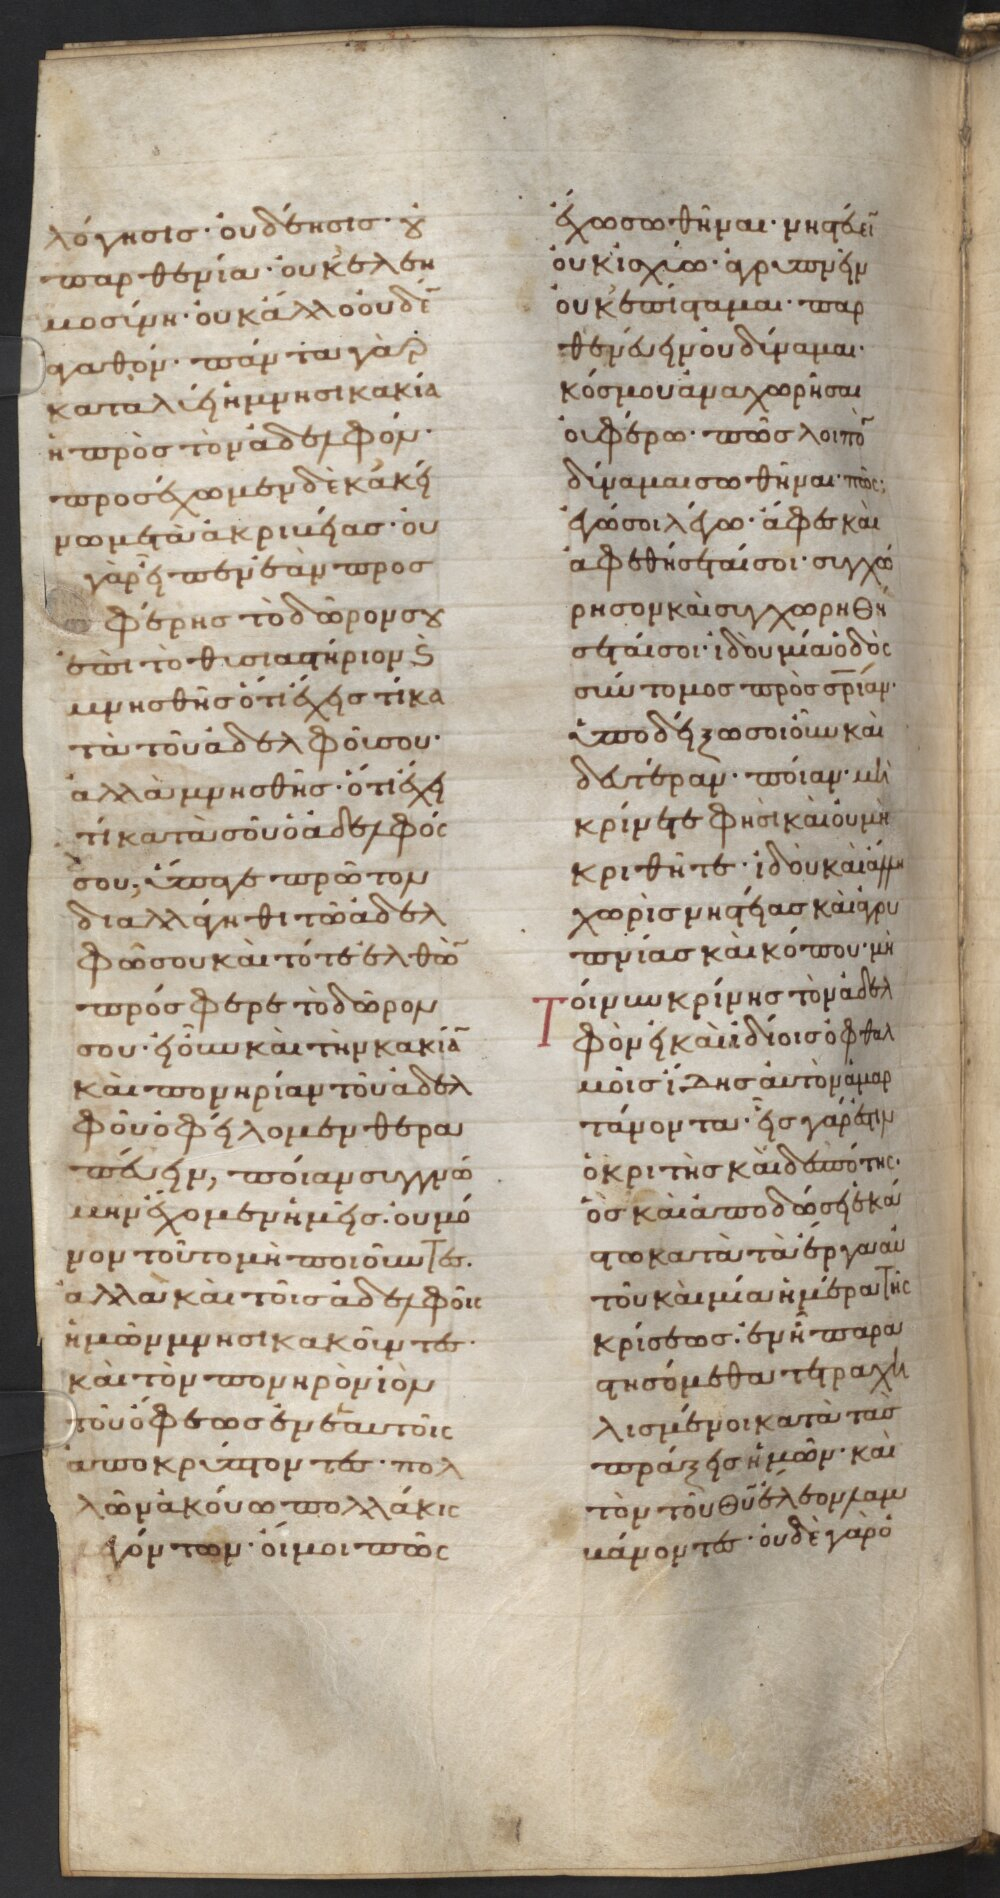 λόγησις · ὀυδέησις · ȣ
παρθενία · ὀυκ ἐλεη
μοσύνη · ὀυκ ἄλλο ὀυδὲ̄
ἀγαθόν · πάντα γὰρ
καταλύει ἡ μνησικακία
ἡ πρὸς τὸν ἀδελφόν ·
προσέχωμεν δὲ κἀκεῖ
νω μετὰ ἀκριβείας · ὀυ
γὰρ εἶπεν ἐὰν προσ
φέρης τὸ δῶρον σȣ
ἐπὶ τὸ θυσιαστήριον ϗ
μνησθῆς ὅτι ἔχεις τί κα
τὰ τοῦ ἀδελφοῦ σου ·
ἀλλὰ μνησθῆς · ὅτι ἔχει
τί κατὰ σοῦ ὁ ἀδελφός
σου, ὕπαγε πρῶτον
διαλλάγηθι τῶ ἀδελ
φῶ σου καὶ τότε ἐλθὼ̄
πρόσφερε τὸ δῶρον
σου · εἰ οὖν καὶ τὴν κακίᾱ
καὶ πονηρίαν τοῦ ἀδελ
φοῦ ὀφείλομεν θερα
πεύειν, ποίαν συγγνώ
μην ἔχομεν ἡμεῖς · ὀυ μό
νον τοῦτο μὴ ποιοῦντες ·
ἀλλὰ καὶ τοῖς ἀδελφοῖς
ἡμῶν μνησικακοῦντες ·
καὶ τὸν πονηρὸν ἰὸν
τοῦ ὄφεως ἐν ἑαυτοῖς
ἀποκρύπτοντες · πολ
λῶν ἀκούω πολλάκις
λεγόντων · ὄιμοι πῶς
ἔχω σωθῆναι · νηστεύεῑ
ὀυκ ἰσχύω · ἀγρυπνεῖν
ὀυκ ἐπίσταμαι · παρ
θενεύειν ὀυ δύναμαι ·
κόσμου ἀναχωρῆσαι
ὀυ φέρω · πῶς λοιπὸ̄
δύναμαι σωθῆναι · πῶς;
ἐγώ σοι λέγω · ἄφες καὶ
ἀφεθήσεταί σοι · συγχώ
ρησον καὶ συγχωρηθή
σεταί σοι · ἰδοὺ μία ὁδὸς
σύντομος πρὸς σρίαν ·
ὑποδείξω σοι οὖν καὶ
δευτέραν · ποίαν · μὴ
κρίνετε φησὶ καὶ ὀυ μὴ
κριθῆτε · ἰδοὺ καὶ ἄλλη
χωρὶς νηστείας καὶ ἀγρυ
πνίας καὶ κόπου · μὴ
Τοίνυν κρίνης τὸν ἀδελ
φὸν εἰ καὶ ἰδίοις ὀφθαλ
μοῖς ἴδης ἀυτὸν ἁμαρ
τάνοντα · εἷς γάρ ἐστιν
ὁ κριτὴς καὶ δεσπότης ·
ὃς καὶ ἀποδώσει ἑκά
στω κατὰ τὰ ἔργα ἀυ
τοῦ καὶ μία ἡμέρα τῆς
κρίσεως · ἐν ἧ παρα
στησόμεθα τετραχη
λισμένοι κατὰ τὰς
πράξεις ἡμῶν · καὶ
τὸν τοῦ Θῦ ἔλεον λαμ
βάνοντες · ὀυδὲ γὰρ ὁ